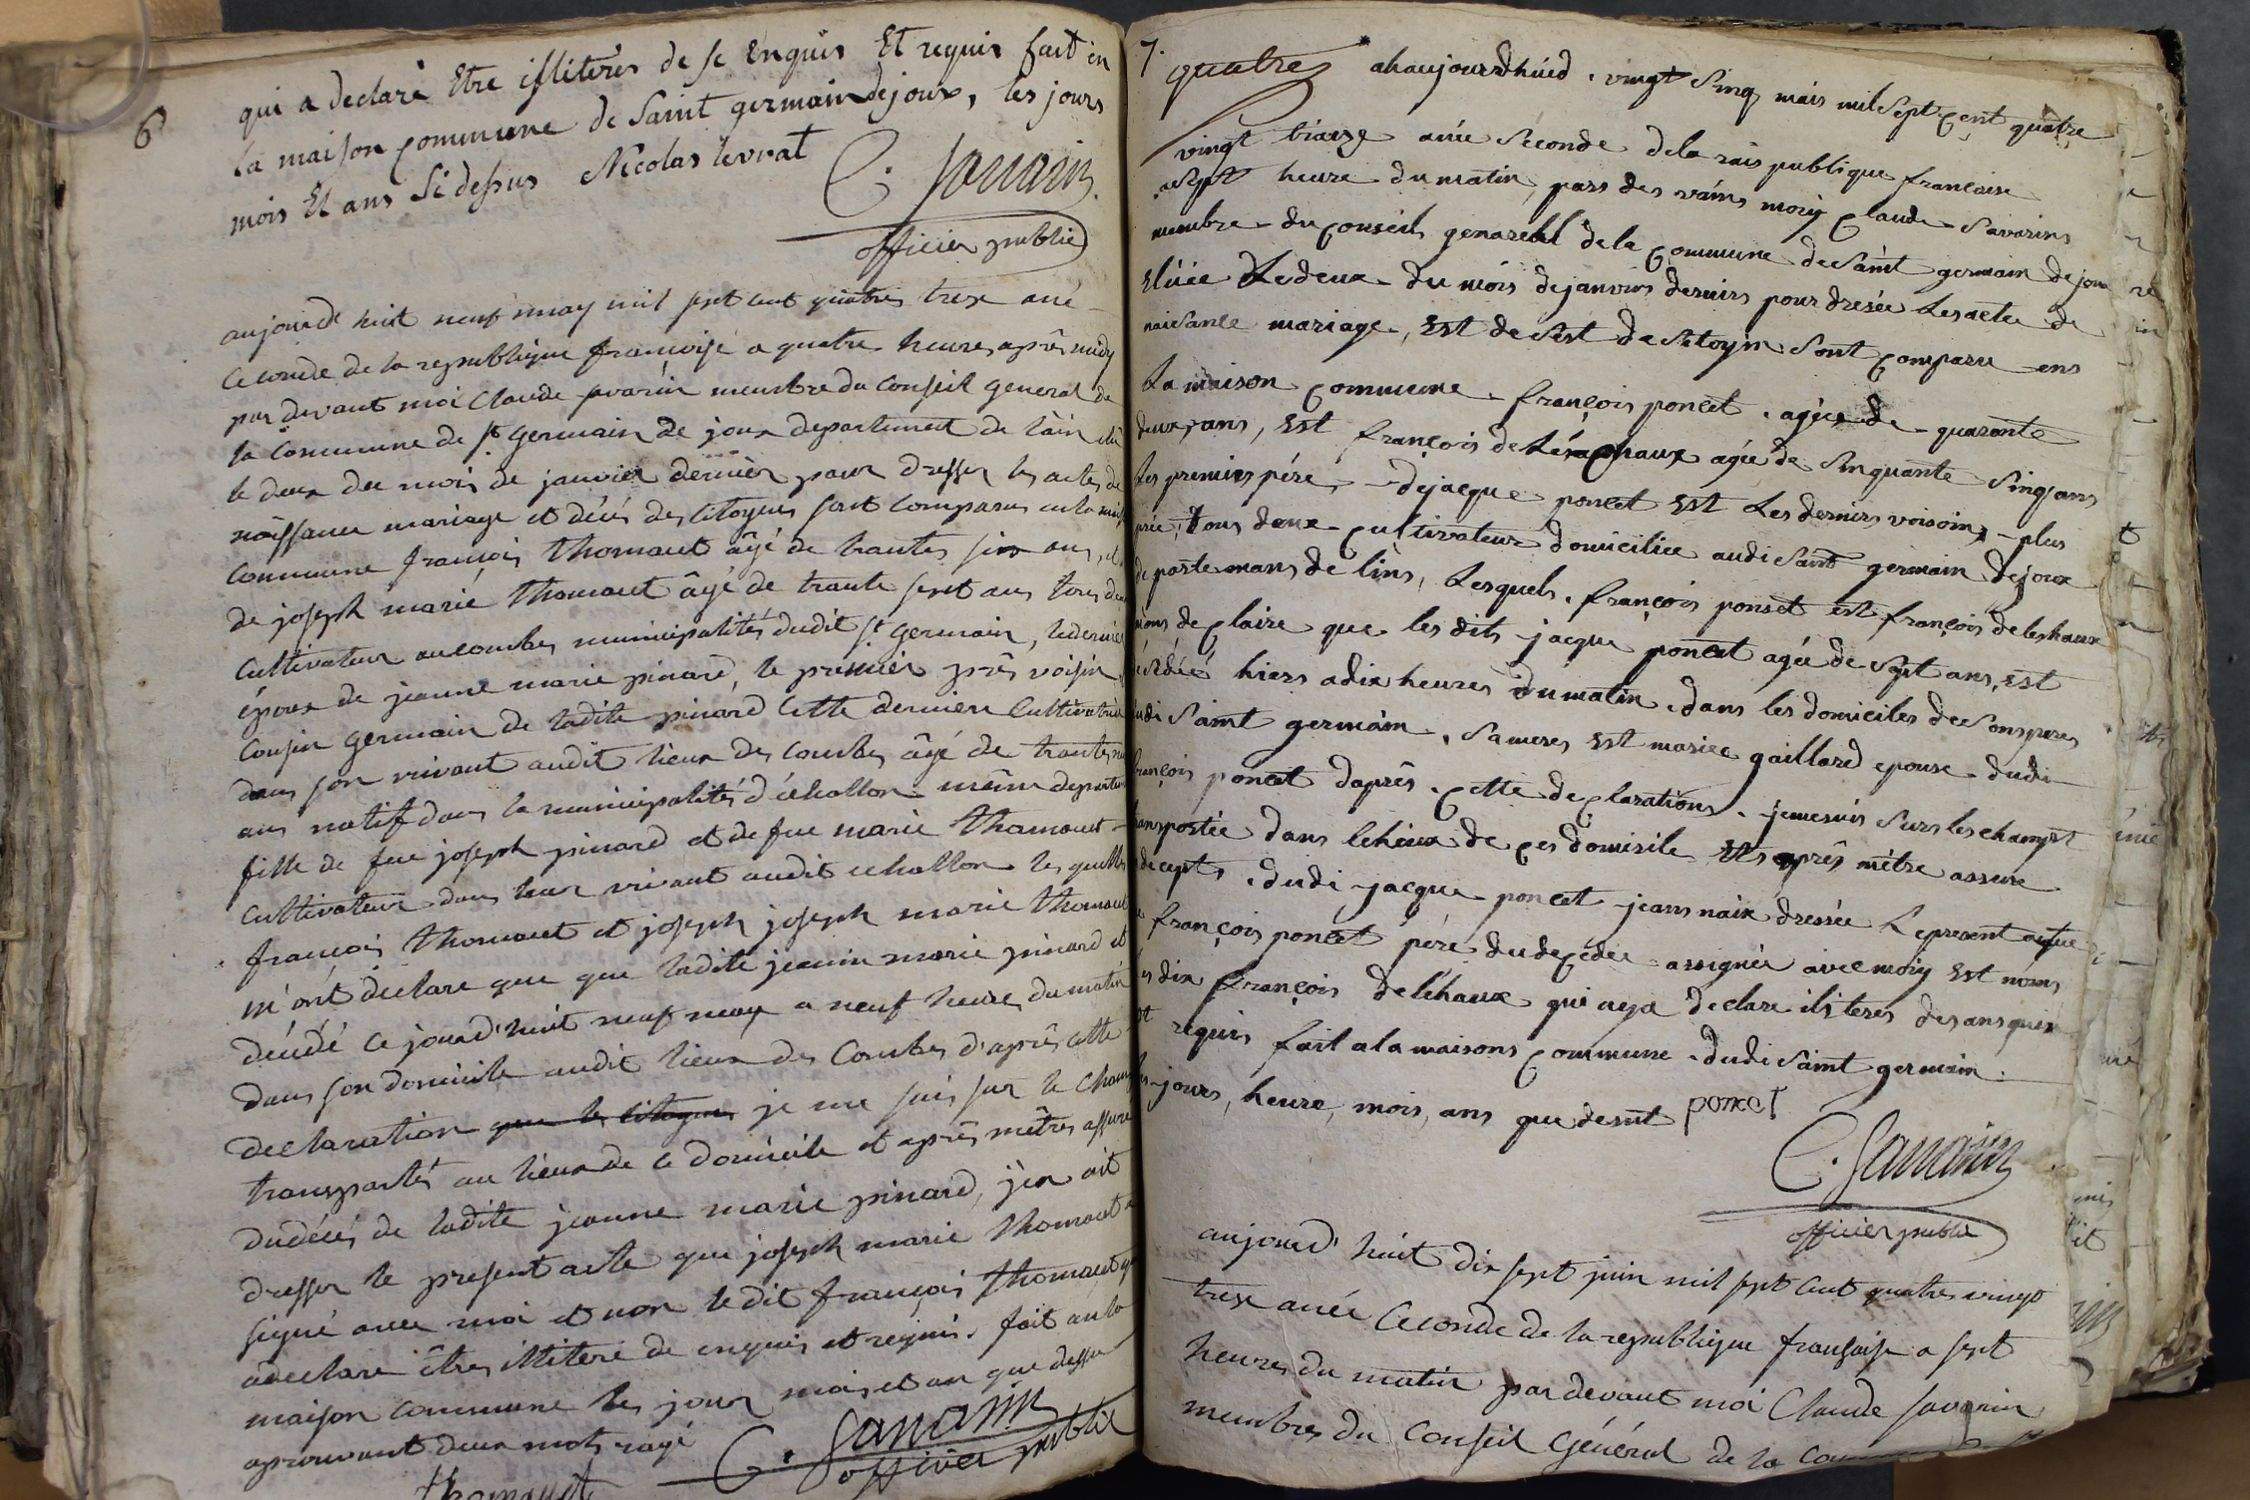 6
qui a declaré Etre illiteres de se enquis Et requis fait en
la maison commune de Saint germain de joux, les jours
mois Et ans Si dessus Nicolas levrat
C. Savarin
officier public
aujourd huit neuf may mil sept cent quatres trese ané
ceconde de la republique françoise a quatre heures après midy
par devant moi Claude savarin membre du Conseil general de
la Commune de st germain de joux departement de l'ain élu
le deux du mois de janvier dernier pour dresser les actes de
naissance mariage et décés des citoyens sont comparus en la mais
commune françois thomasset âgé de trantes six ans, et
de joseph marié thomasset âgé de trante sept ans tous deux
cultivateur au combes municipalités dudit st germain, le dernier
époux de jeanne marie pinard, le premier près voisin
cousin germain de ladite pinard cette derniere Cultivatrice
dans son vivant audit lieux des combes âgé de trantes
ans natif dans la municipalités d'échallon même departem
fille de feu joseph pinard et de feue marie thomasset
cultivateur dans leur vivant audit echallon les quelles
françois thomasset et joseph joseph marie thomasset
m'ont déclare que que ladite jeanne marie pinard et
décédé ce jourd'huit neuf may a neuf heures du matin
dans son domicile audit lieux des Combes d'après cette
declaration que les citoyens je me suis sur le champ
transportés au lieux de ce domicile et après mêtres assuré
du décés de ladite jeanne marie pinard, j'en ait
dresser le present acte que joseph marie thomasset a
signé avec moi et non ledit françois thomasset qui
a declare êtres illiteré de enquis et requis. fait au la
maison commune les jour mois et an que dessus
aprouvant deux mots rayé
C. Savarin
officier public
7.
quatres ahaujourdhuid. vingt Sinq mais mil Sept cent quatre
vingt biaize anée Seconde dela rais publique francaise
a Sept heure du matin, pars des vains moiy Claude Savarins
membre du conseils genarelel dela commune de Saint germain de joux
Eluée Ledeux du mois dejanvirs dernirs pour dresée Lesactee de
naisance mariage, Est de sest de Sitoyin Sont comparu ens
La maison commune. françois poncet. agée de quaronte
deux ans, Est françois de Lé chaux agée de Sinquante Sinq ans
Les premirs pére, dejacque poncet Est Les dernirs voisoins plus
prée, tous deux cultivateur domicilice audi Saint germain dejoux
de partemans de lins, Lesquels. françois ponset est françois deleshaux
mons declaire que les dits jacque poncet agée de Sept ans, est
hiers a dix heures du matin. dans les domiciles de Sonsperes
udi Saint germain. Sameres Est mariee gaillard epouse dudi
françois poncet daprés. cette declarations. jemesuis Surs les champt
transportée dans lelieux de ces domisile Ets aprés métre assure
decepts. dudi jacque poncet jeans naix dressée Le present actue
françois poncet pére dudecédée assignée avec moiy Est nons
dix françois deléhaux qui aya declare ilsteres desansquix
requis fait a la maisons commune. dudi Saint germain.
jours, heure, mois, ans que desut poncet
C. Savarin
officier public
aujourd' huit dix sept juin mil sept cent quatres vingt
trese anée Ceconde de la republique françaises a sept
heures du matin par devant moi Claude savarin
membres du Conseil Général de la